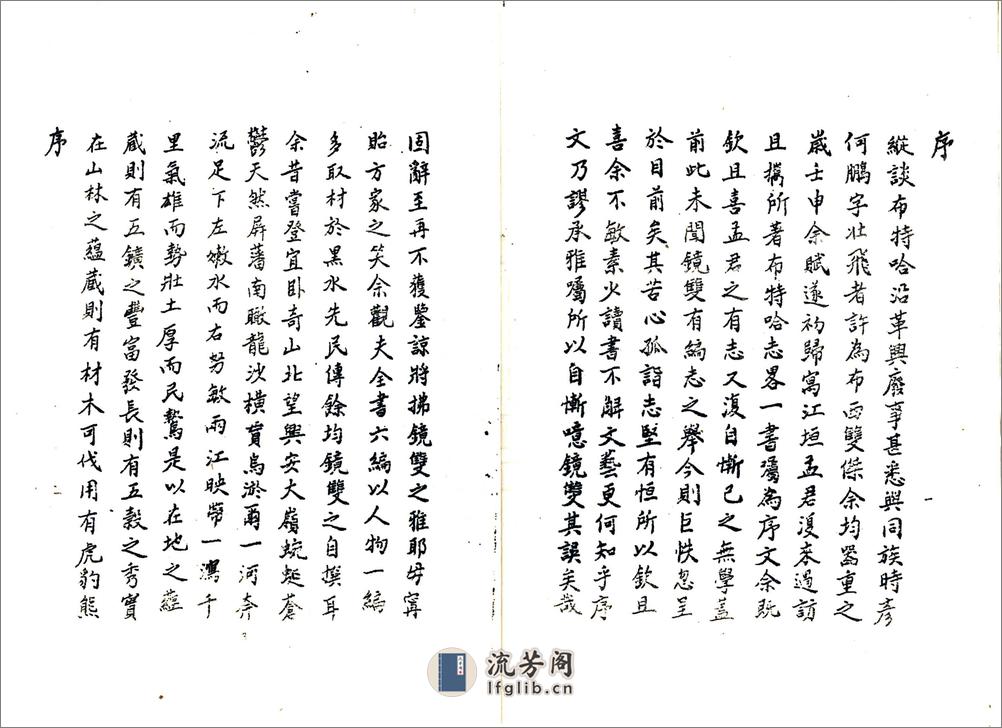 序
縱談布特哈沿革興廢事甚悉與同族時彥
何鵬字壯飛者許為布西雙傑余均器重之
歲壬申余賦遂初歸寓江垣孟君復來過訪
且攜所著布特哈志畧一書囑為序文余既
欽且喜孟君之有志又復自慚已之無學蓋
前此未聞鏡雙有編志之舉今則巨帙忽呈
於目前矣其苦心孤詣志堅有恒所以欽且
喜余不敏素少讀書不解文藝更何知乎序
文乃謬承雅囑所以自慚噫鏡雙其誤矣哉
一
固辭至再不獲鑒諒將拂鏡雙之雅耶毋寧
貽方家之笑余觀夫全書六編以人物一編
多取材於黑水先民傳餘均鏡雙之自撰耳
余昔嘗登宜卧奇山北望興安大嶺蜿蜒蒼
鬱天然屏藩南瞰龍沙橫貫烏淤爾一河奔
流足下左嫩水而右努敏兩江映帶一瀉千
里氣雄而勢壯土厚而民驁是以在地之蘊
蔵則有五鑛之豐富發長則有五穀之秀實
在山林之蘊蔵則有材木可伐用有虎豹熊
序
流芳阁
lfglib.cn